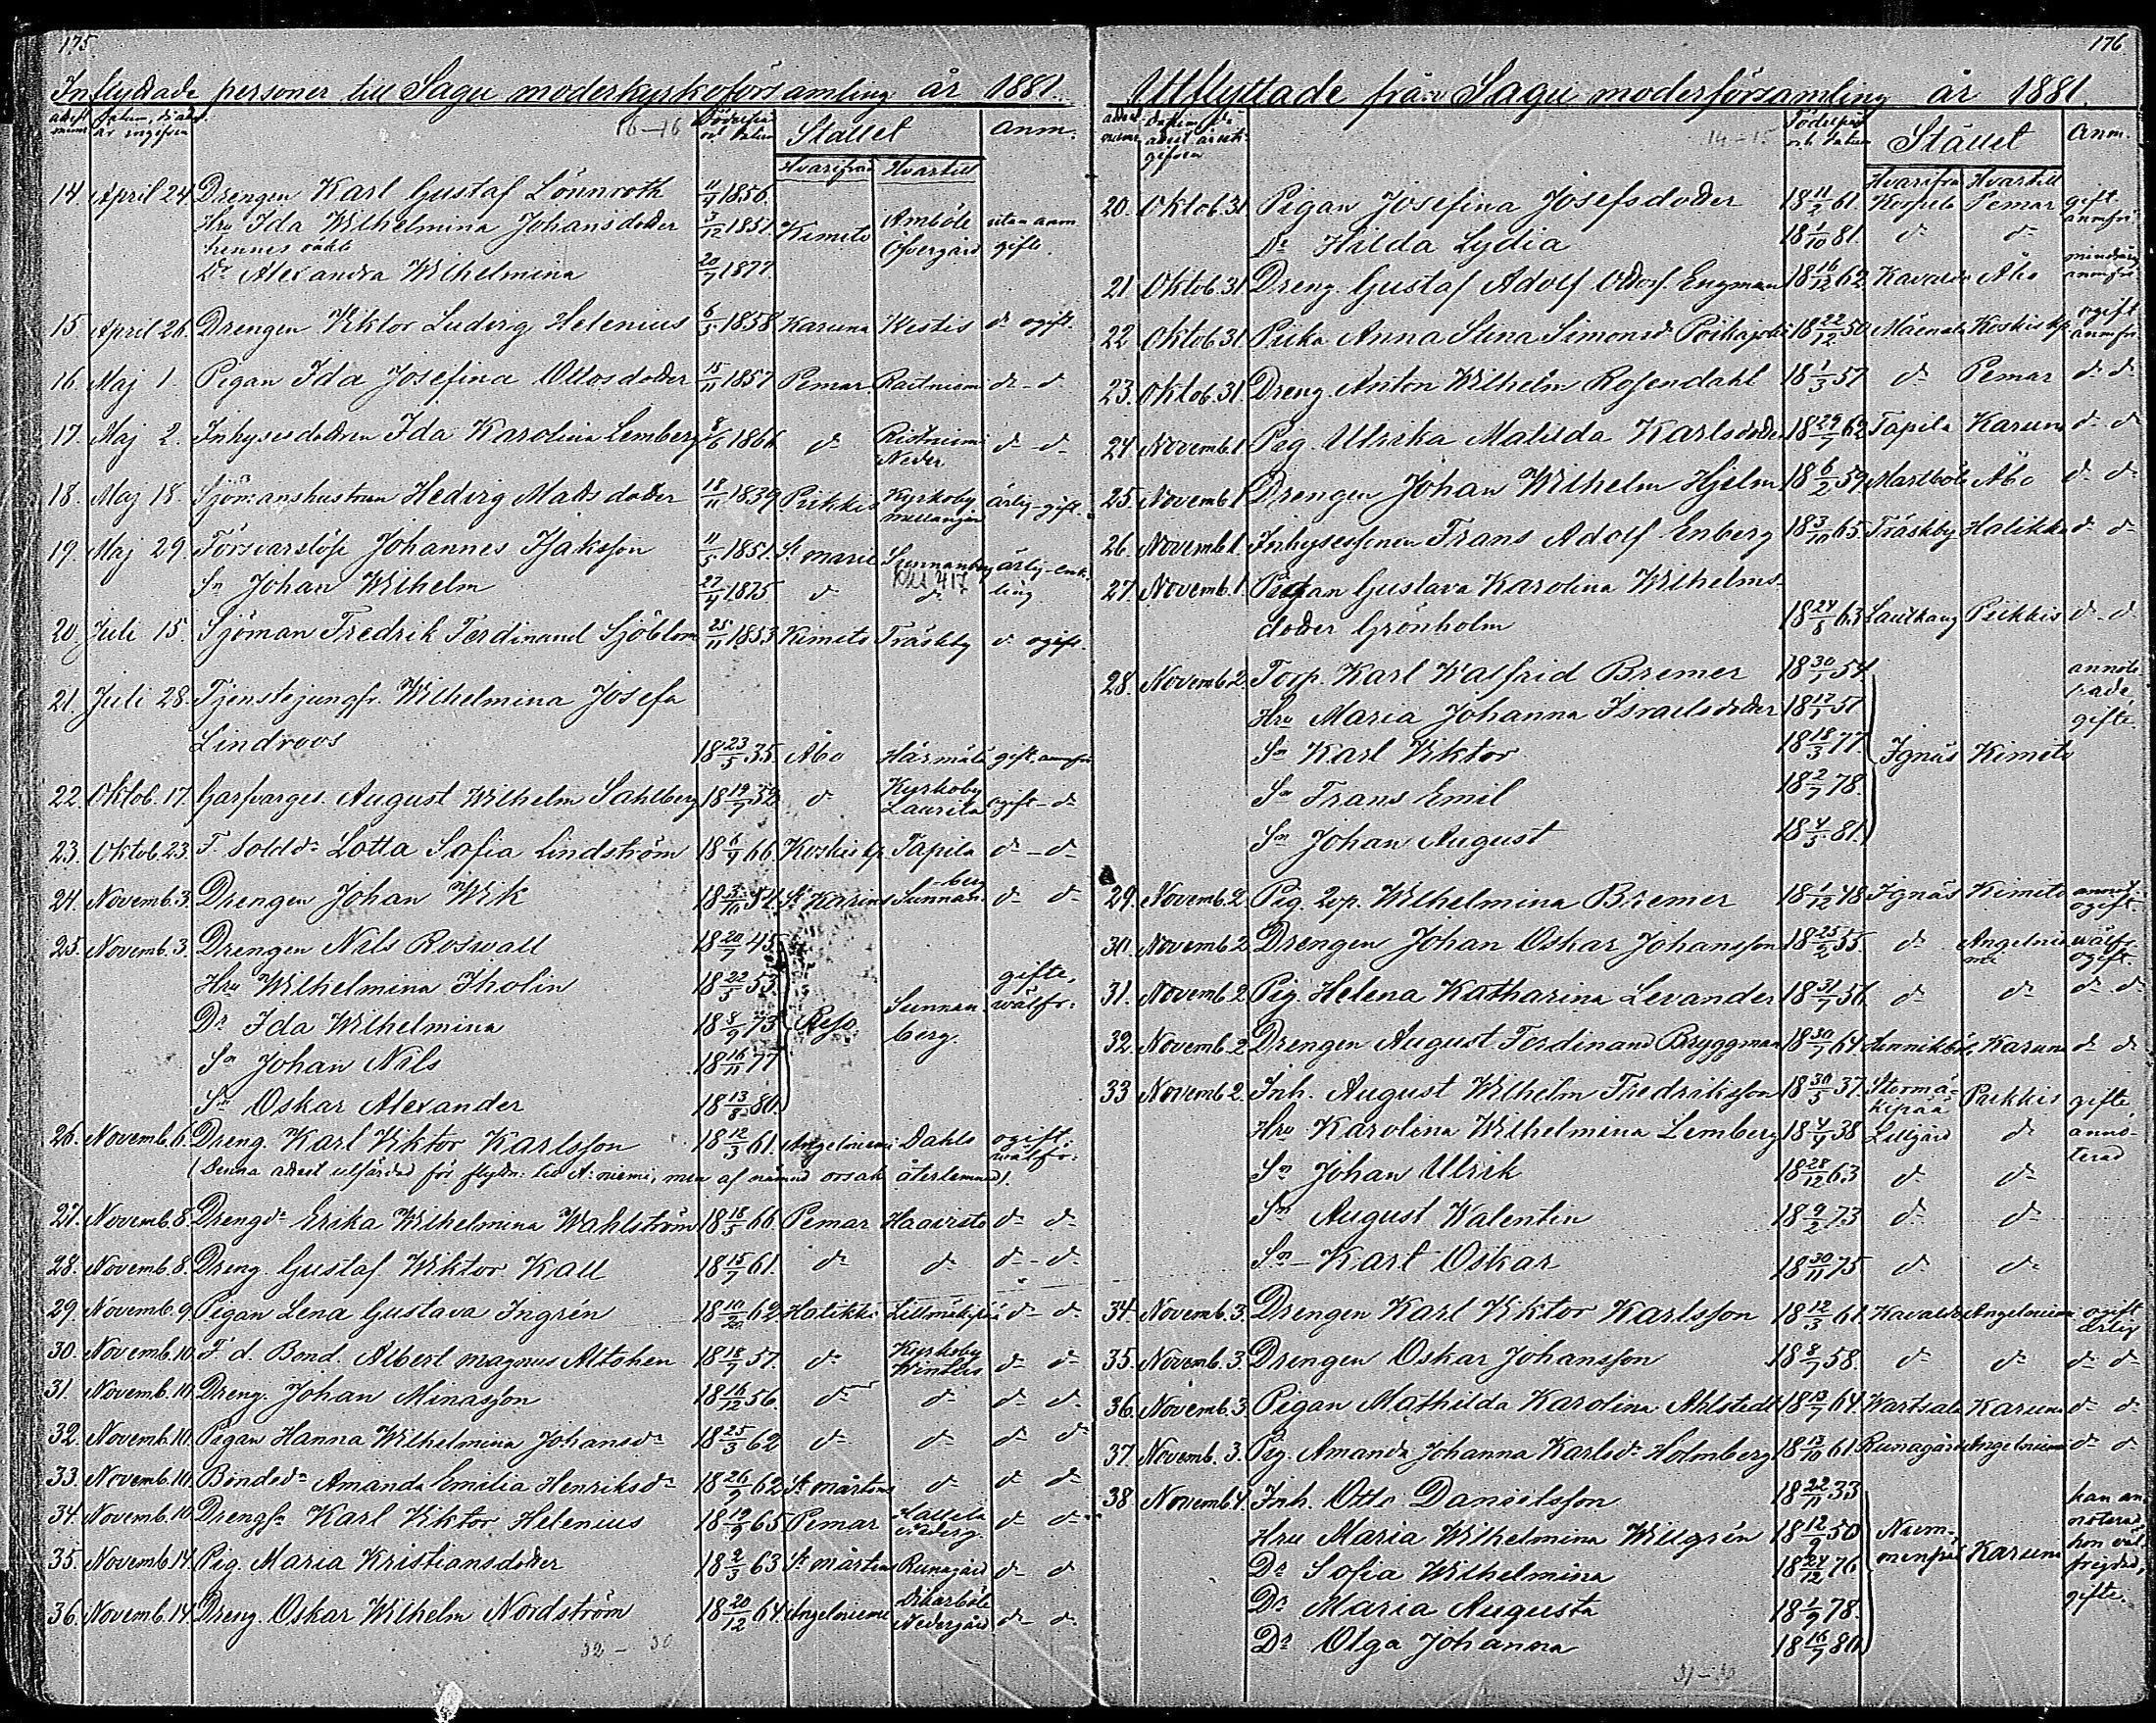 175
Inflyttade personer till Sagu moderkyrkoförsamling år 1881.
16-16 Stället Anm.
Hvarifrån Hvartill
14 April 24 Drengen Karl Gustaf Lönnroth 11/4 1856.
Hru Ida Wilhelmina Johansdotter 3/12 1851. Kimito Amböle utan anm
hennes oäkta Öfvergård gifte.
Dr Alexandra Wilhelmina 20/7 1877.
15. April 26. Drengen Viktor Ludvig Helenius 6/5 1858 Karuna Kestis do ogift.
16. Maj 1. Pigan Ida Josefina Ottosdotter 15/11 1857 Pemar Rautniemi do-do
17. Maj 2. Inhysesdottren Ida Karolina Lemberg 8/6 1866 do Ristniemi do-do
Neder
18. Maj 18 Sjömanshustrun Hedvig Matsdotter 18/11 1839 Pikkis Kyrkoby ärlig-gift.
mellangård
19. Maj 29. Försvarslöse Johannes Isaksson 11/5 1851. St marie Sunnanberg ärlig-enk-
Sn Johan Wilhelm 27/4 1875 do do ling
20 Juli 15. Sjöman Fredrik Ferdinand Sjöblom 25/11 1853 Kimito Träskby do ogift.
21. Juli 28. Tjenstejungfr. Wilhelmina Josefa
Lindroos 18 23/5 35. Åbo Härmälä gift. anmfri
22. Oktob. 17. Garfvarges. August Wilhelm Sahlberg 18 19/7 52 do Kyrkoby ogift-do
Laurila
23. Oktob. 23. F. Solddr Lotta Sofia Lindström 18 6/9 66. Koskis kp. Tapila do-do
24. Novemb. 3. Drengen Johan Wik St Karins Sunnan- do do
berg
25. Novemb. 3. Drengen Nils Roswall 18 20/7 45
Hru Wilhelmina Tholin 18 22/5 53 gifte,
Dr Ida Wilhelmina 18 8/9 73 Reso. Sunnan- wälfr:
berg.
Sn Johan Nils 18 16/11 77
Sn Oskar Alexander 18 13/8 80.
26. Novemb. 6. Dreng. Karl Viktor Karlsson 18 12/3 61. Angelniemi Dahls ogift.
wälfr:
(Denna attest utfärdad för flyttn: till A:niemi, men af nämnd orsak återlemnad).
27. Novemb. 8. Drengdr Erika Wilhelmina Wahlström 18 18/5 66 Pemar Haavisto do do
28. Novemb. 8. Dreng. Gustaf Viktor Kall 18 15/7 61. do do do-do
29. Novemb. 9. Pigan Lena Gustava Ingrén 18 10/2 62 Halikko do-do
30. Novemb. 10. F. d. Bond. Albert magnus Altohen 18 18/7 57. do Kyrkoby do do
31. Novemb. 10. Dreng. Johan Minasson 18 16/12 56. do do do do
32. Novemb. 10. Pigan Hanna Wilhelmina Johansdr 18 25/3 62 do do do do
33. Novemb. 10. Bondedr Amanda Emilia Henriksdr 18 26/9 62 St mårtens do do do
34. Novemb. 10 Drengsn Karl Viktor Helenius 18 19/9 65 Pemar Hallela do do
Nederg.
35. Novemb. 14. Pig. Maria Kristiansdotter 18 2/3 63 St mårtens Runagård do do
36. Novemb. 14. Dreng. Oskar Wilhelm Nordström 18 20/12 64 Angelniemi Dikarböle do do
Nedergård
32-30
176
Utflyttade från Sagu moderförsamling år 1881.
14-15 Stället Anm.
Hvarifrån Hvartill
20. Oktob. 31 Pigan Josefina Josefsdotter 18 11/2 61. Korpela Pemar gift.
anmfri
Dr Hilda Lydia 18 1/10 81. do do
21. Oktob. 31 Dreng. Gustaf Adolf Engman 18 16/12 62. Kavaldo Åbo minderårig
anmfri
22 Oktob. 31 Pieka Anna Stina Simonsdr 18 22/12 50 Mäenala Koskis kp. ogift
anmfri
23. Oktob. 31. Dreng. Anton Wilhelm Rosendahl 18 1/3 57 do Pemar do do
24. Novemb. 1. Pig. Ulrika Matilda Karlsdotter 18 29/7 62 Tapila Karuna do do
25. Novemb. 1 Drengen Johan Wilhelm Hjelm 18 6/2 59. Martböle Åbo do do
26. Novemb. 1. Inhysessonen Frans Adolf Enberg 18 3/10 65. Träskby Halikko do do
27. Novemb. 1. Pigan Gustava Karolina Wilhelms-
dotter Grönholm 18 24/8 63 Lautkang Pikkis do do
28. Novemb. 2. Torp. Karl Walfrid Bremer 18 30/1 54 annote-
rade
Hru Maria Johanna Israelsdotter 18 17/1 57 gifte.
Sn Karl Viktor 18 18/3 77 Ignäs Kimito
Sn Frans Emil 18 2/7 78.
Sn Johan August 18 4/5 81.
29. Novemb. 2. Pig. Wilhelmina Bremer 18 1/12 48 Ignäs Kimito annot.
ogift.
30. Novemb. 2. Drengen Johan Oskar Johansson 18 25/2 55. do Angelnie- wälfr.
mi ogift.
31. Novemb. 2. Pig. Helena Katharina Levander 18 31/7 56. do do do do
32. Novemb. 2. Drengen August Ferdinand Bryggman 18 30/7 64 Annikböle Karuna do do
33 Novemb. 2. Inh. August Wilhelm Fredriksson 18 30/5 37. Stormä- Pikkis gifte,
kipää
Hru Karolina Wilhelmina Lemberg 18 4/4 38 Lillgård do anno-
terad
Sn Johan Ulrik 18 28/12 63 do do
Sn August Walentin 18 9/2 73 do do
Sn Karl Oskar 18 30/11 75 do do
34. Novemb. 3. Drengen Karl Viktor Karlsson 18 12/3 61. Kavaldo Angelniemi ogift
ärlig
35. Novemb. 3. Drengen Oskar Johansson 18 8/7 58. do do do do
36. Novemb. 3. Pigan Mathilda Karolina Ahlstedt 18 13/7 64 Wartsala Karuna do do
37. Novemb. 3. Pig. Amanda Johanna Karlsdr Holmberg 18 13/10 61 Runagård Angelniemi do do
38. Novemb. 4. Inh. Otto Danielsson 18 22/11 33 han an-
noterad,
Hru Maria Wilhelmina Willgrén 18 12/9 50 Niem- Karuna hon väl-
menpää
Dr Sofia Wilhelmina 18 24/12 76 frejdad,
Dr Maria Augusta 18 1/9 78. gifte.
Dr Olga Johanna 18 16/7 80.
31-30